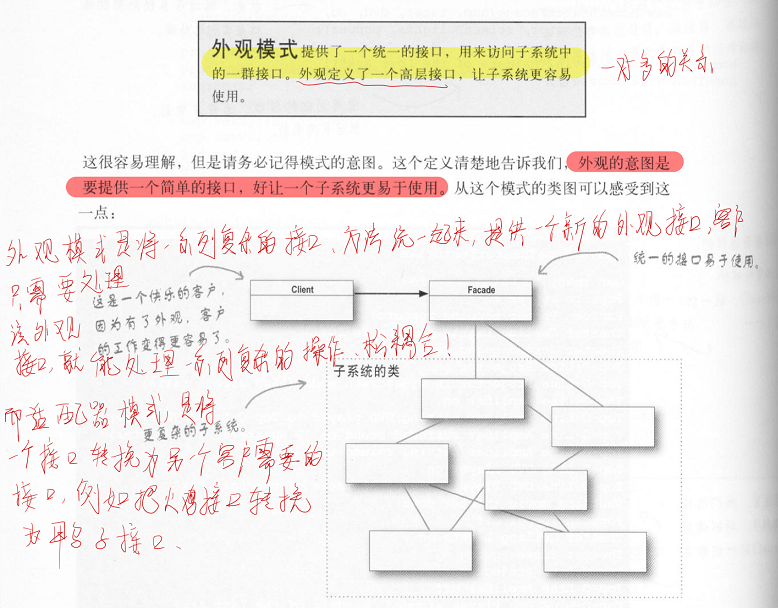 外观模式提供了一个统一的接口，用来访问子系统中
的一群接口。外观定义了一个高层接口，让子系统更容易
使用。
一对多的关系
这很容易理解，但是请务必记得模式的意图。这个定义清楚地告诉我们，外观的意图是
要提供一个简单的接口，好让一个子系统更易于使用。从这个模式的类图可以感受到这
一点：
外观模式是将一系列复杂的接口、方法统一起来，提供一个新的外观接口，客户
只需要处理
该外观
接口，就能处理一系列复杂的操作、松耦合！
而适配器模式，是将
一个接口转换为另一个客户需要的
接口，例如把火鸡接口转换
为鸭子接口、
这是一个快乐的客户，
因为有了外观，客户
的工作变得更容易了。
Client
Facade
统一的接口易于使用。
子系统的类
更复杂的子系统。